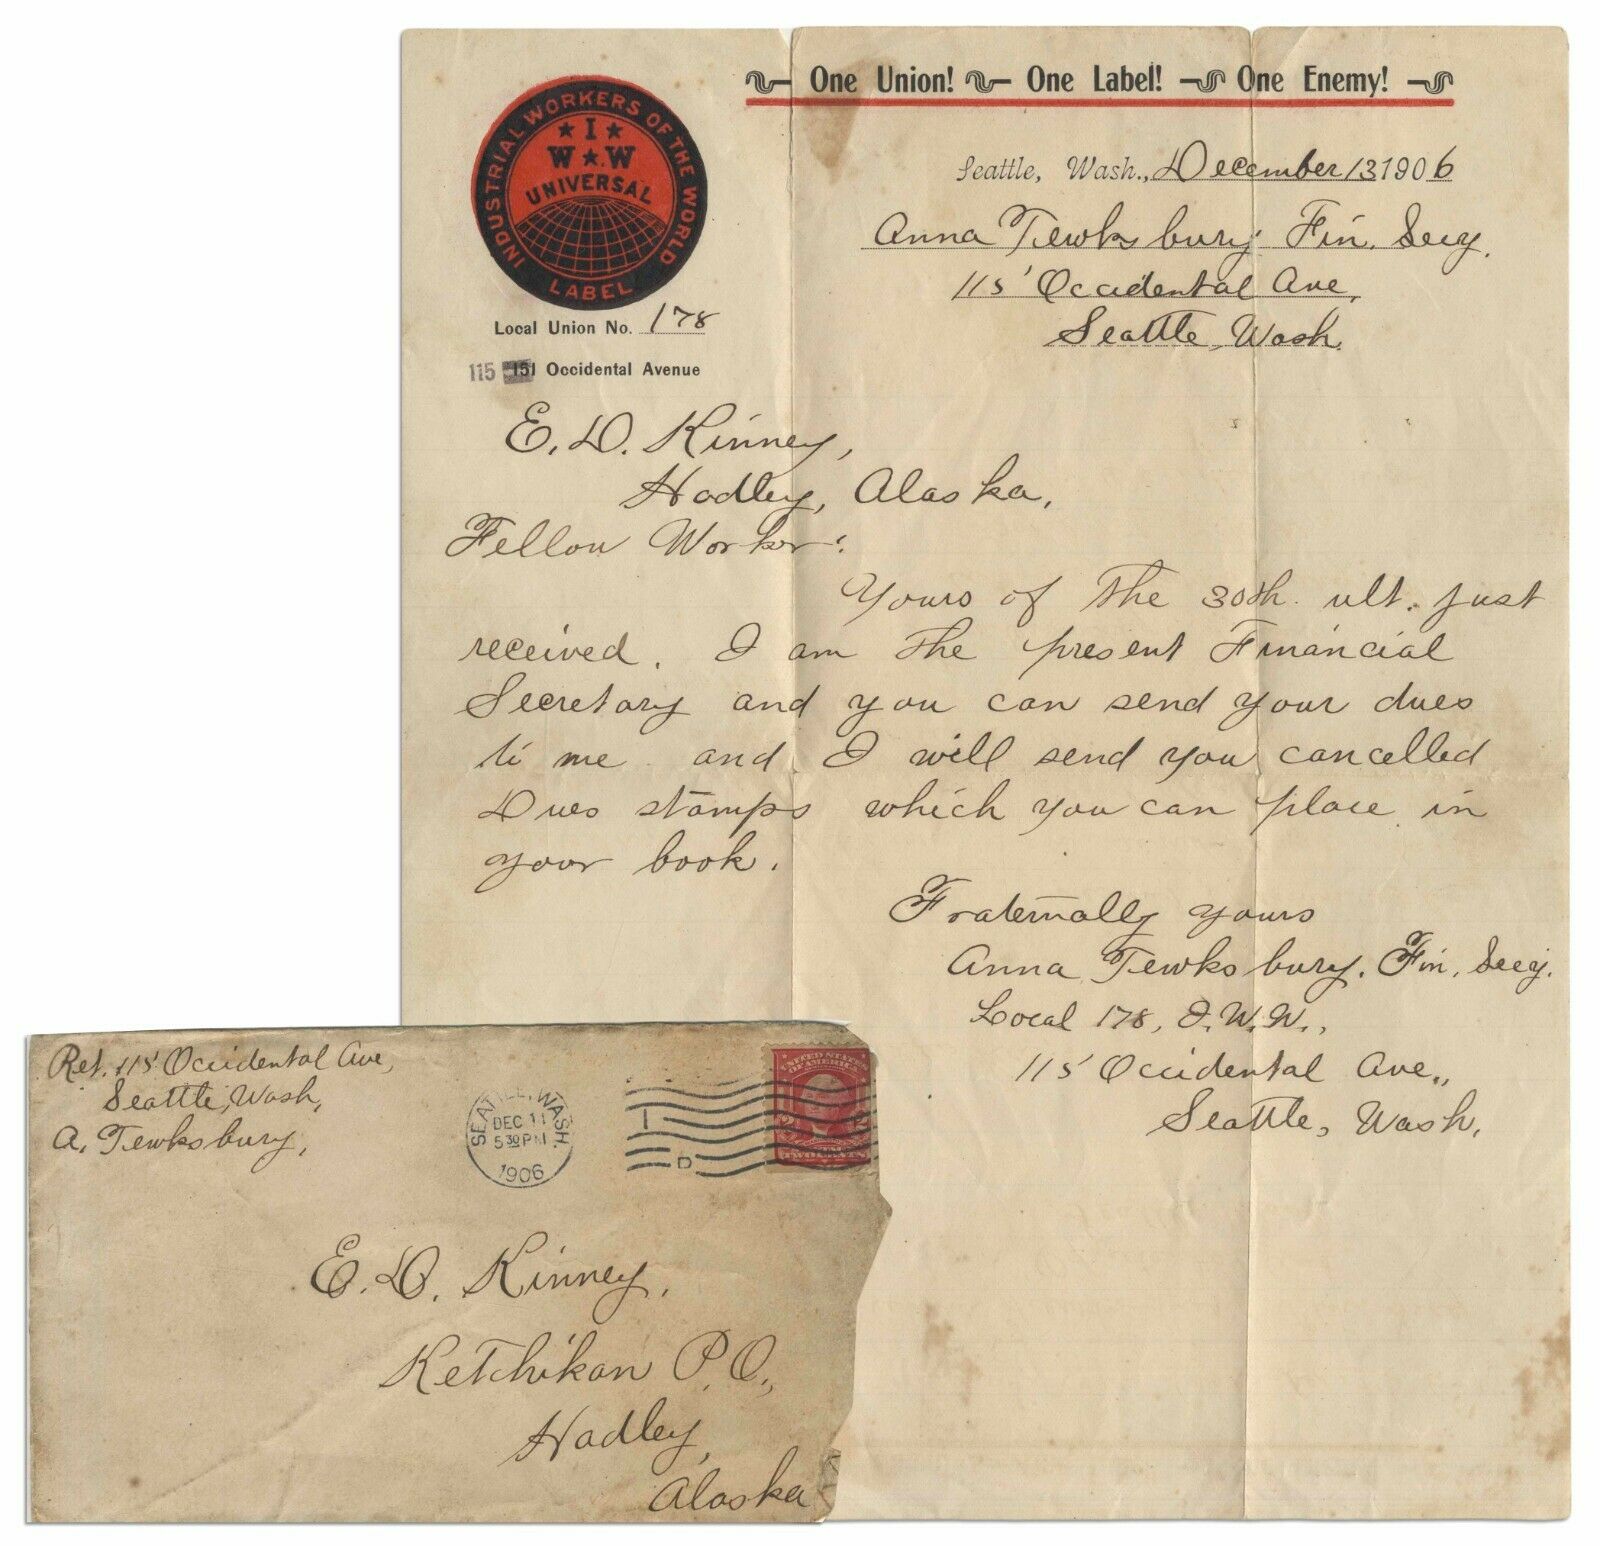 One Union! One Label! One Enemy!
INDUSTRIAL WORKERS OF THE WORLD
I
W W
UNIVERSAL
LABEL
Local Union No. 178
115 151 Occidental Avenue
Seattle, Wash., December 13 1906
Anna Tewksbury Fin. Secy.
115 Occidental Ave,
Seattle, Wash.
E. D. Kinney,
Hadley, Alaska.
Fellow Worker:
Yours of the 30th. ult. just
received. I am the present Financial
Secretary and you can send your dues
to me and I will send you cancelled
Dues stamps which you can place in
your book.
Fraternally yours
Anna Tewksbury. Fin. Secy.
Local 178, I.W.W.,
115 Occidental Ave.,
Seattle, Wash.
Ret. 115 Occidental Ave,
Seattle, Wash,
A. Tewksbury,
SEATTLE, WASH.
DEC 11
5 30 PM
1906
1
D
UNITED STATES
OF AMERICA
2 2
TWO CENTS
E. D. Kinney,
Ketchikan P.O.,
Hadley,
Alaska